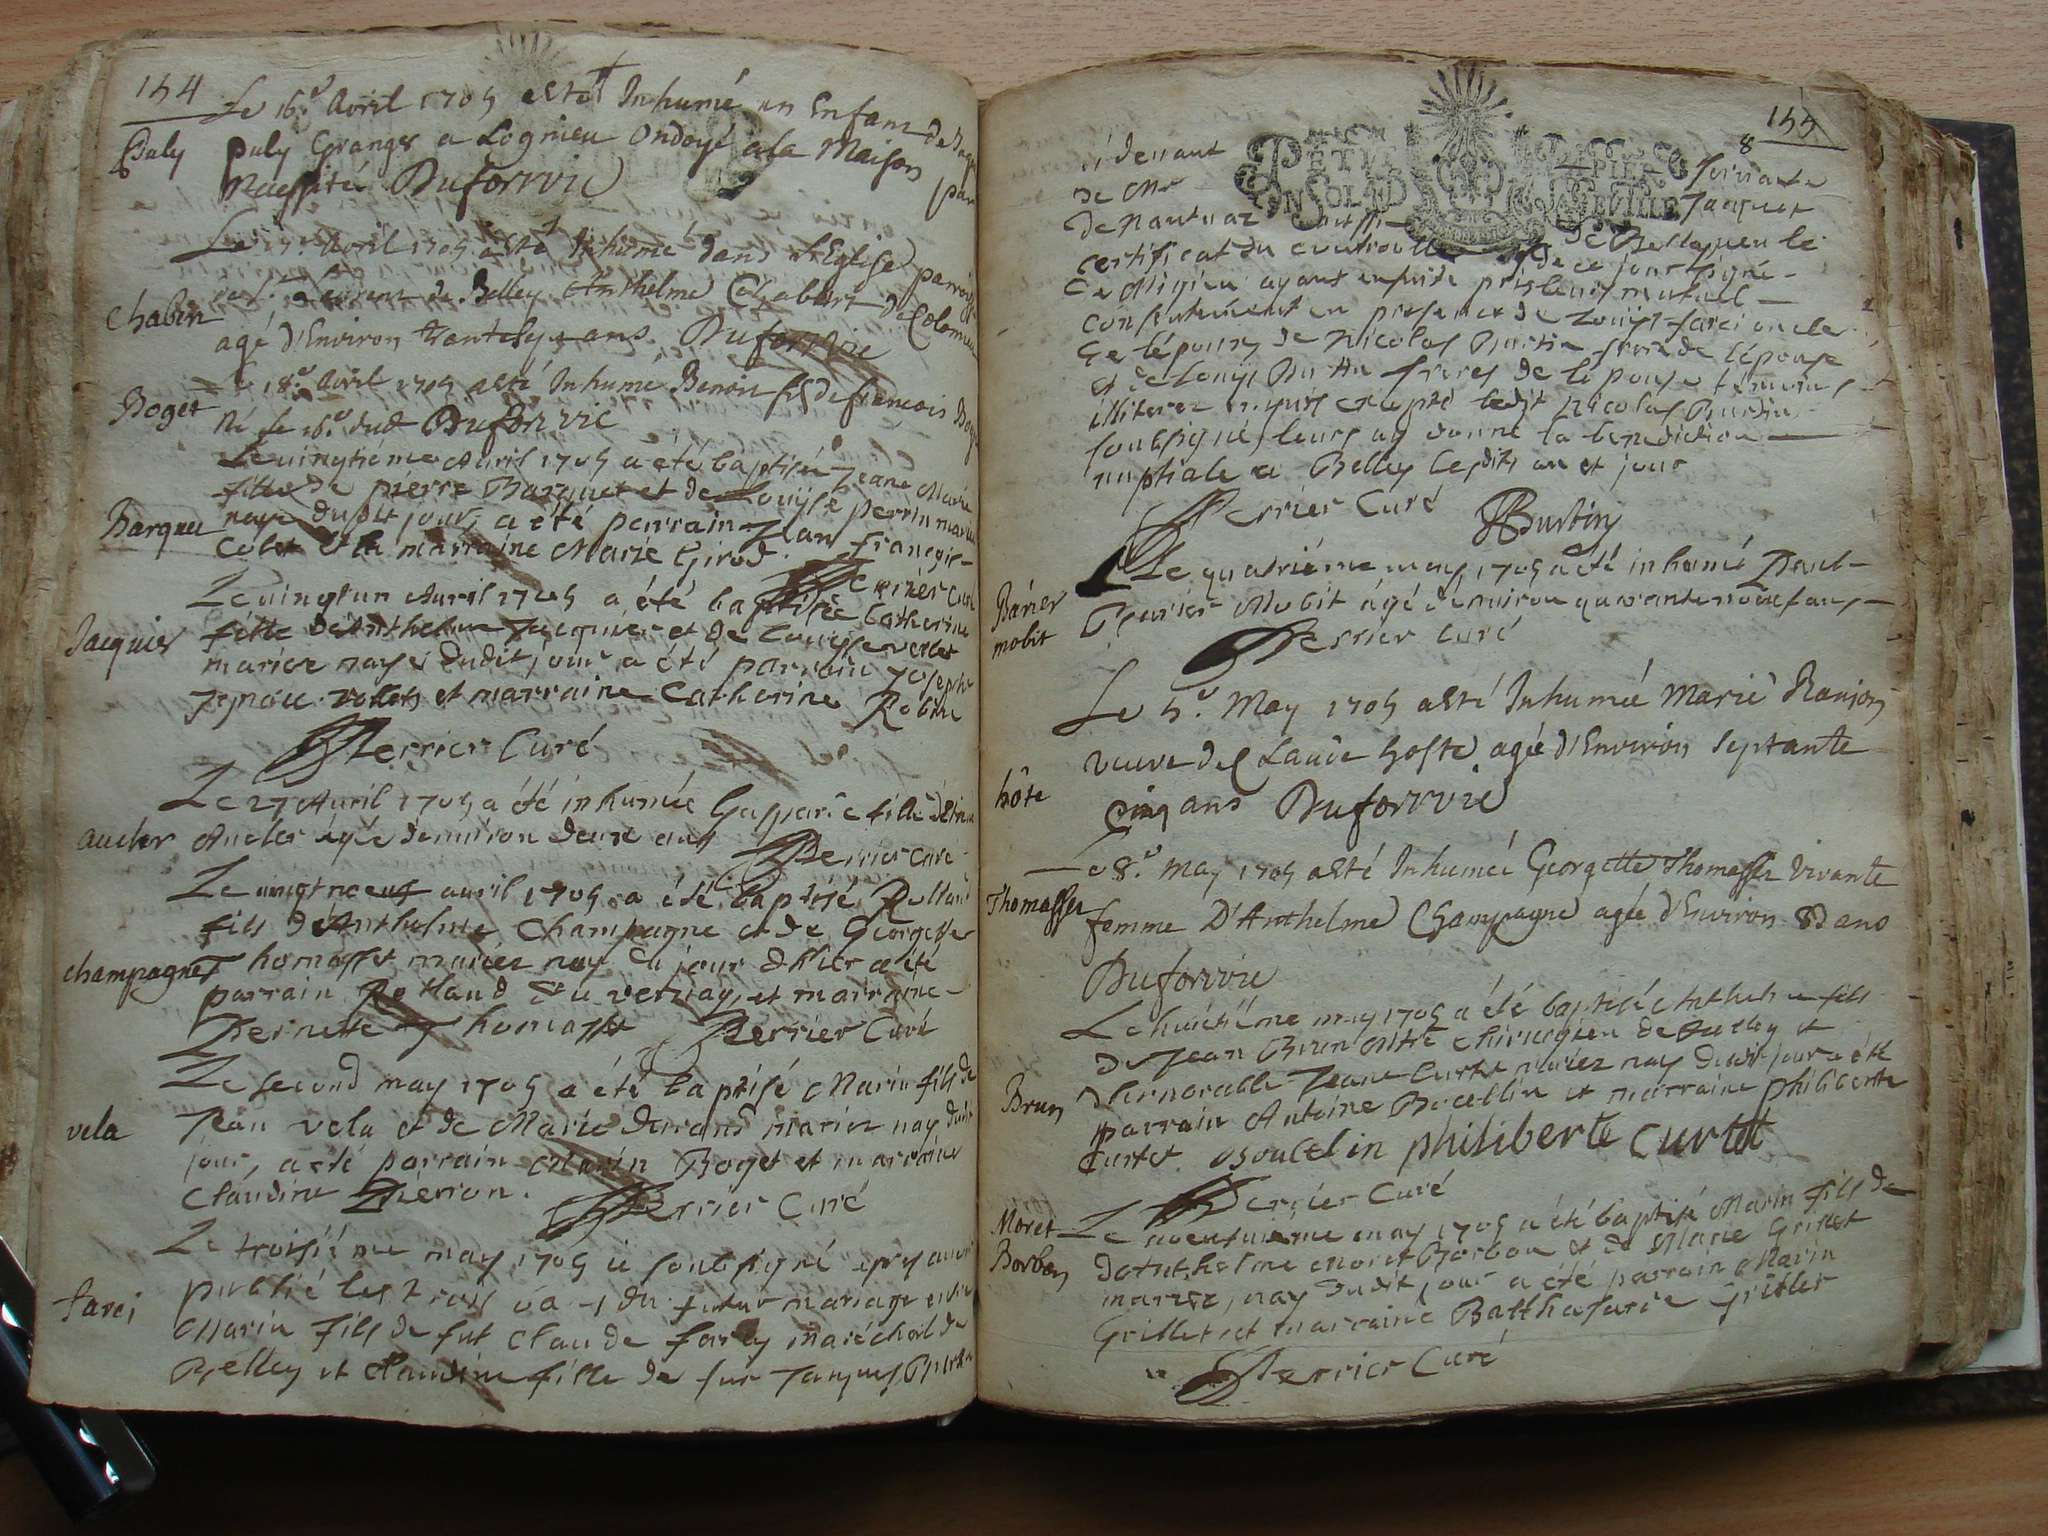 154
Le 16.e Avril 1705 a esté Inhumé un Enfant de
Puly
Puly Granger a Lognieu Ondoyé a la Maison par
Necessité Duforvie
Le 17.e Avril 1705 a esté Inhumé dans l'Eglise
de Belley Anthelme Chabert de Colomieu
Chabert
agé d'Environ ans Duforvie
Le 18.e Avril 1705 a esté Inhumé Benoit fils de francois Boget
Boget
Né le 16.e dud Duforvie
Le vingtiéme Avril 1705 a été baptisée Jeane Marie
fille de pierre Barquet et de Louyse perrin mariez
Barquet
naye dudit jour, a été parrain Jean françois
Colet et la marraine Marie Girod. Perrier Curé
Le vingtun Avril 1705 a été baptisée Catherine
Jacquier
fille d'Anthelme Jacquier et de Louyse
mariez naye dudit jour a été parrain Joseph
et marraine Catherine Robin
Perrier Curé
Le 27 Avril 1705 a été inhumée Gasparde fille
aucler
Aucler agée denviron deux ans Perrier Curé
Le vingtneuf avril 1705 a été baptisé Rolland
fils d'Anthelme Champagne et de Georgette
champagne
Thomasset mariez nay du jour d'hier a été
parrain Rolland Du vernay, et marraine
Pernette Thomasset Perrier Curé
Le second may 1705 a été baptisé Marin fils de
vela
Jean vela et de Marie mariez nay dudit
jour, a été parrain Marin Boget et marraine
Claudine Pierron. Perrier Curé
Le troisiéme may 1705 ie soubsigné apres avoir
publié les trois bans du futur mariage entre
farci
Marin fils de fut Claude farcy maréchal de
Belley et Claudine fille de fut Janques Burtin
155
8
de Mr
de Nantuaz
certificat du de ce jour signé
De Migieu ayant ensuite pris leur mutuel
consentement en presence de Louys farci oncle
de lépoux de Nicolas Burtin frere de lépouse
et de Louys frères de lépouse temoins
illiterez requis excepté ledit Nicolas Burtin
soubsigné, leurs ay donné la benediction
nuptiale a Belley lesdits an et jour
Perrier Curé Burtin
Le quatriéme may 1705 a été inhumé
mobit
Mobit agé denviron quarante neuf ans
Perrier Curé
Le 5.e May 1705 a esté Inhumée Marie Ranjon
veuve de Claude hoste agée d'Environ Septante
hôte
Cinq ans Duforvie
Le 8.e May 1705 a esté Inhumée Georgette Thomasset Vivante
Thomasset
femme D'Anthelme Champagne agée d'Environ ans
Duforvie
Le huictiéme may 1705 a été baptisé Anthelme fils
de Jean Brun Mitre Chirurgien de Belley et
Brun
d'honorable Jeane Curtet mariez nay dudit jour a été
parrain Antoine Bocellin et marraine philiberte
Curtet philiberte Curtet
Perrier Curé
Moret
Le neufuiéme may 1705 a été baptisé Marin fils de
Borbon
d'Anthelme Moret Borbon et de Marie Grillet
mariez, nay dudit jour a été parrain Marin
Grillet et marraine Balthasarde Grillet
Perrier Curé